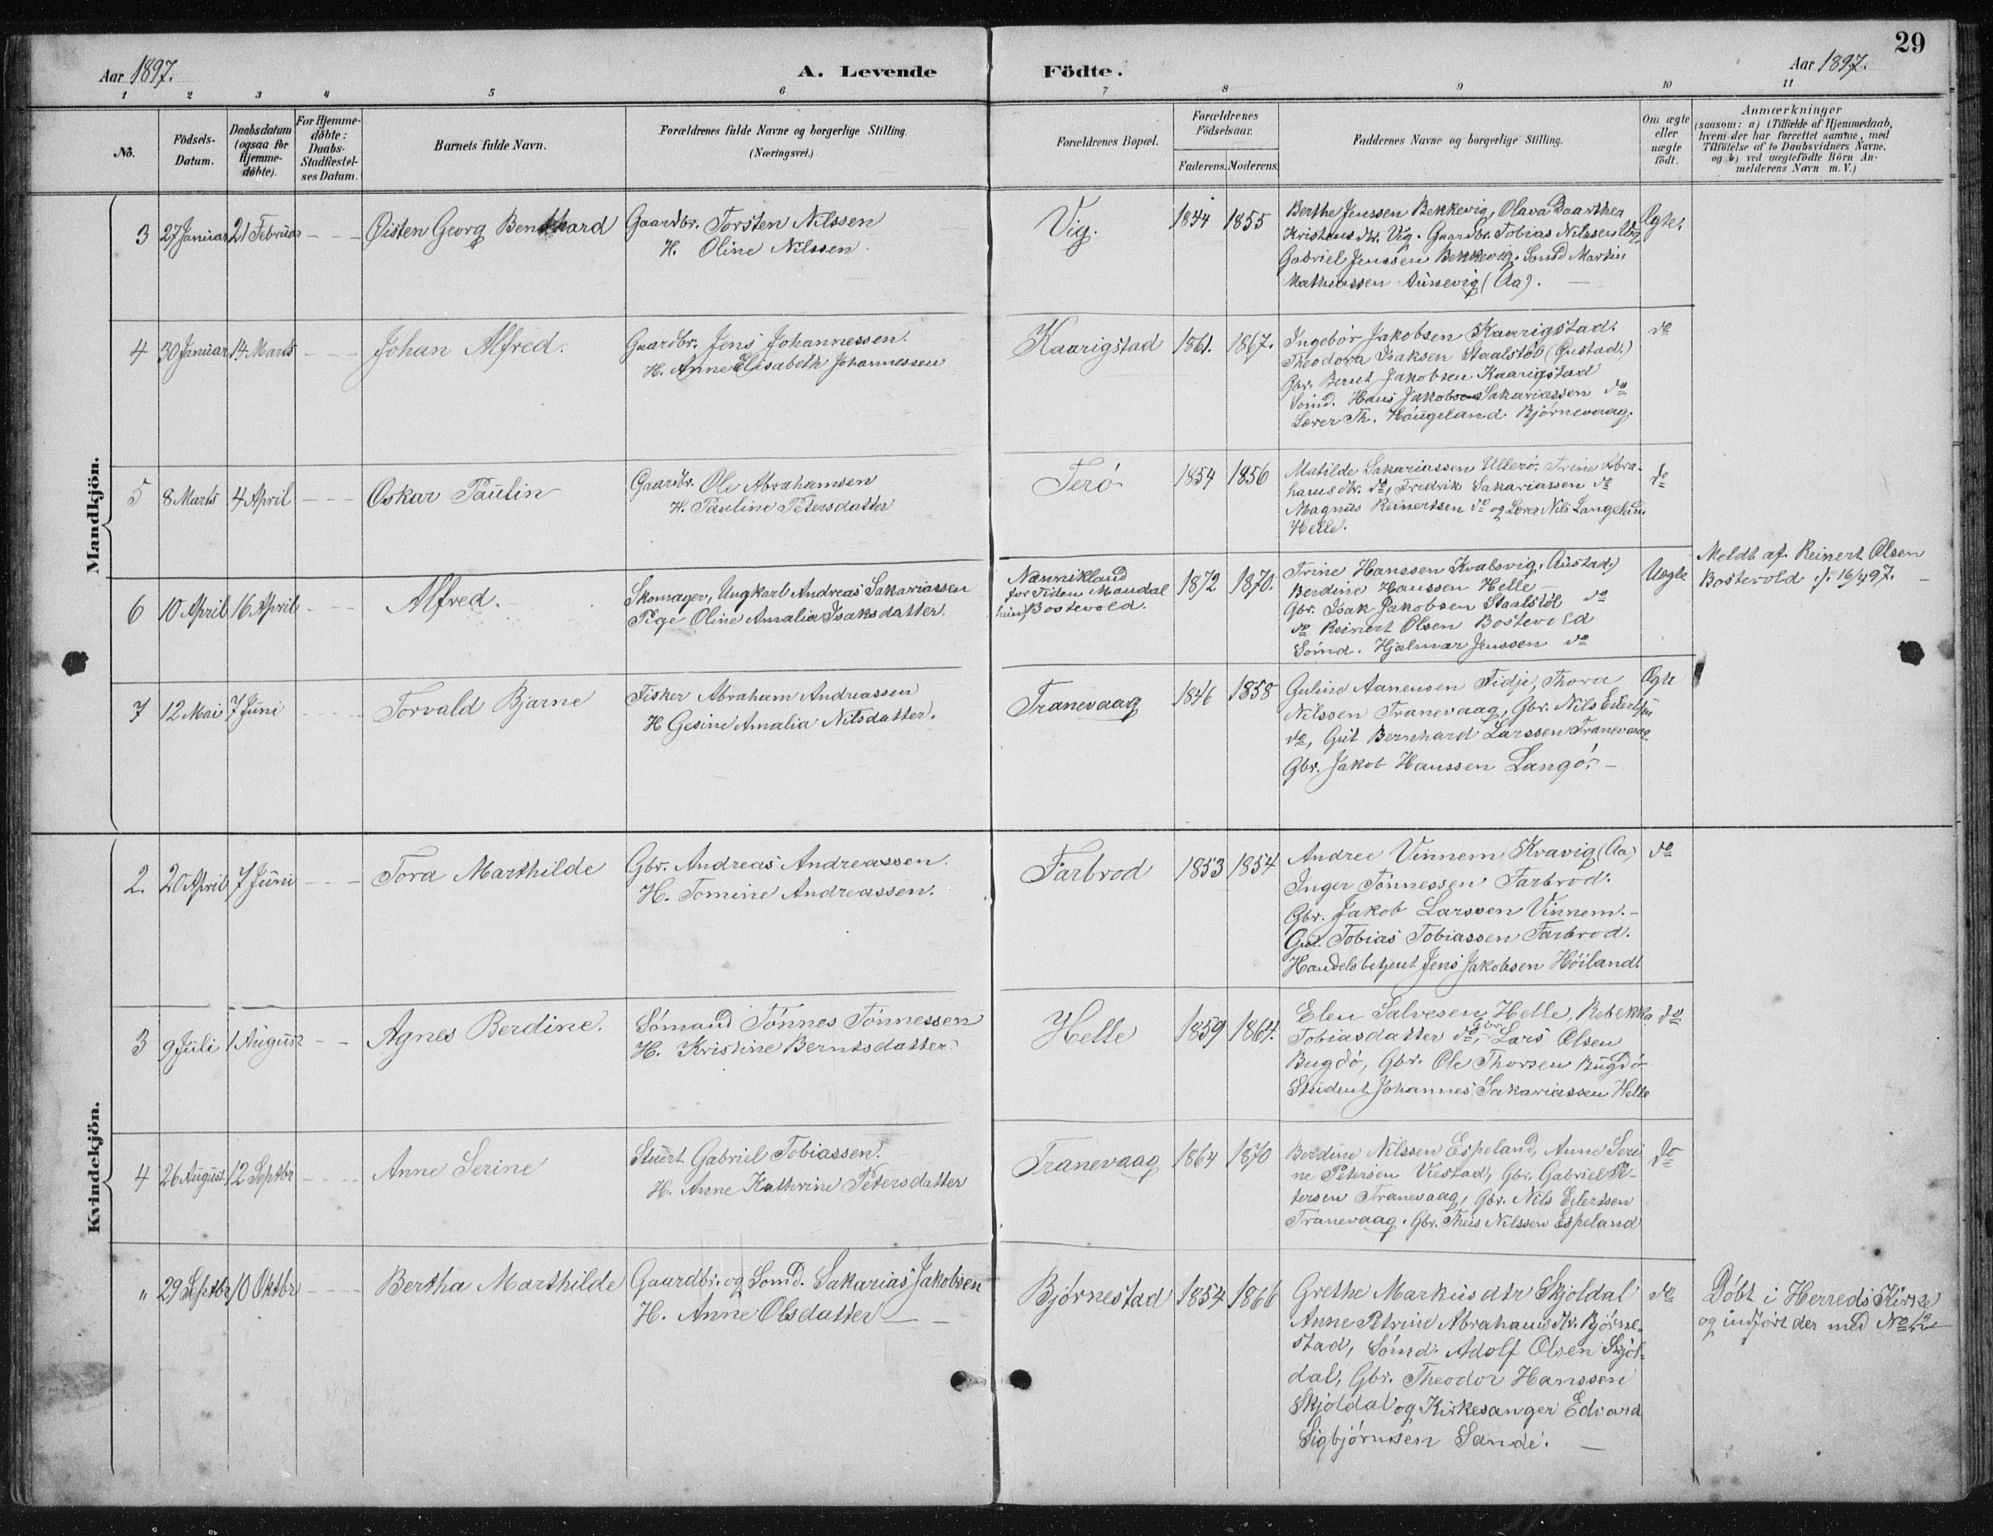 29
Aar 1897.
A. Levende Födte.
Aar 1897.
1 2 3 4 5 6 7 8 9 10 11
No.
Födsels-
Datum.
Daabsdatum
(ogsaa for
Hjemme-
døbte).
For Hjemme-
döbte:
Daabs-
Stadfæstel-
ses Datum.
Barnets fulde Navn.
Forældrenes fulde Navne og borgerlige Stilling.
(Næringsvei.)
Forældrenes Bopæl.
Forældrenes
Födselsaar.
Faderens. Moderens.
Faddernes Navne og borgerlige Stilling.
Om ægte
eller
uægte
födt.
Anmærkninger
(saasom: a) i Tilfælde af Hjemmedaab,
hvem der har forrettet samme, med
Tilföielse af to Daabsvidners Navne,
og b) ved uægtefödte Börn An-
melderens Navn m. V.)
Mandkjön.
3 27 Januar 21 Februar
Øisten Georg Bernhard
Gaardbr. Torsten Nilssen
H. Oline Nilssen
Vig.
1844 1855
Berthe Jenssen Bekkevig, Olava Baarthea
Kristensdtr. Vig. Gaardbr. Tobias Nilssen Vig,
Gabriel Jenssen Bekkevig. Sømd Martin
Mathiassen Aunevig (Aa).
Ægte.
4 30 Januar 14 Marts
Johan Alfred.
Gaardbr. Jens Johannessen.
H. Anne Elisabeth Johannessen
Kaarigstad
1861. 1867.
Ingebor Jakobsen Kaarigstad.
Theodora Isaksen Staalstøl (Gustad.)
Gbr. Bernt Jakobsen Kaarigstad
Sømd. Hans Jakobsen Sakariassen do
Lærer Th. Haugeland Bjørnevaag.
do
5 8 Marts 4 April
Oskar Paulin
Gaardbr. Ole Abrahamsen
H. Pauline Petersdatter
Terø
1854 1856
Matilde Sakariassen Ullerø, Trine Abra-
hamsdtr. do, Fredrik Sakariassen do
Magnus Reinertsen do og Lærer Nils Langeland
Helle.
do
6 10 April 16 April
Alfred.
Skomager, Ungkarl Andreas Sakariassen
Pige Oline Amalia Isaksdatter
for Tiden Mandal
Bostevold.
1872 1870.
Trine Hanssen Kvalsvig, (Austad.)
Berdine Hanssen Helle
Gbr. Isak Jakobsen Staalstøl do
do Reinert Olsen Bostevold
Sømd. Hjalmar Jenssen do
Uægte
Meldt af Reinert Olsen
Bostevold 16/4 97.
7 12 Mai 7 Juni
Torvald Bjarne
Fisker Abraham Andreassen
H. Gesine Amalia Nilsdatter.
Tranevaag
1846 1858
Guline Aanensen Fidje, Thora
Nilssen Tranevaag, Gbr. Nils Eilertsen
do, Gut Bernhard Larssen Tranevaag
Gbr. Jakob Hanssen Langø. –
Ægte
Kvindekjön.
2. 20 April 7 Juni
Tora Marthilde
Gbr. Andreas Andreassen.
H. Tomine Andreassen.
Farbrod
1853 1854
Andree Vinnem Kravig (Aa)
Inger Tønnessen Farbrod.
Gbr. Jakob Larssen Vinnem. –
Gut. Tobias Tobiassen Farbrod.
Handelsbetjent Jens Jakobsen Høiland.
do
3 9 Juli 1 August
Agnes Berdine.
Sømand Tønnes Tønnessen
H. Kristine Berntsdatter
Helle
1859 1864.
Elen Salvesen Helle, Rebekka
Tobiasdatter do, Gbr. Lars Olsen
Bugdø, Gbr. Ole Thorsen Bugdø
Student Johannes Sakariassen Helle
do
4 26 August 12 Septbr
Anne Serine
Stuert Gabriel Tobiassen.
H. Anne Kathrine Petersdatter
Tranevaag
1864 1870
Berdine Nilssen Espeland, Anne Seri
ne Petersen Viestad, Gbr. Gabriel Pe-
tersen Tranevaag, Gbr. Nils Eilertsen
Tranevaag. Gbr. Theis Nilssen Espeland
do
" 29 Septbr 10 Oktbr
Bertha Marthilde
Gaardbr. og Sømd. Sakarias Jakobsen
H. Anne Olsdatter
Bjørnestad
1854 1866
Grethe Markusdtr Skjoldal
Anne Petrine Abrahamsdtr. Bjørne-
stad, Sømd. Adolf Olsen Skjol-
dal, Gbr. Theodor Hanssen
Skjoldal og Kirkesanger Edvard
Sigbjørnsen Sande. –
do
Døbt i Herreds Kirke
og indført der med No 12